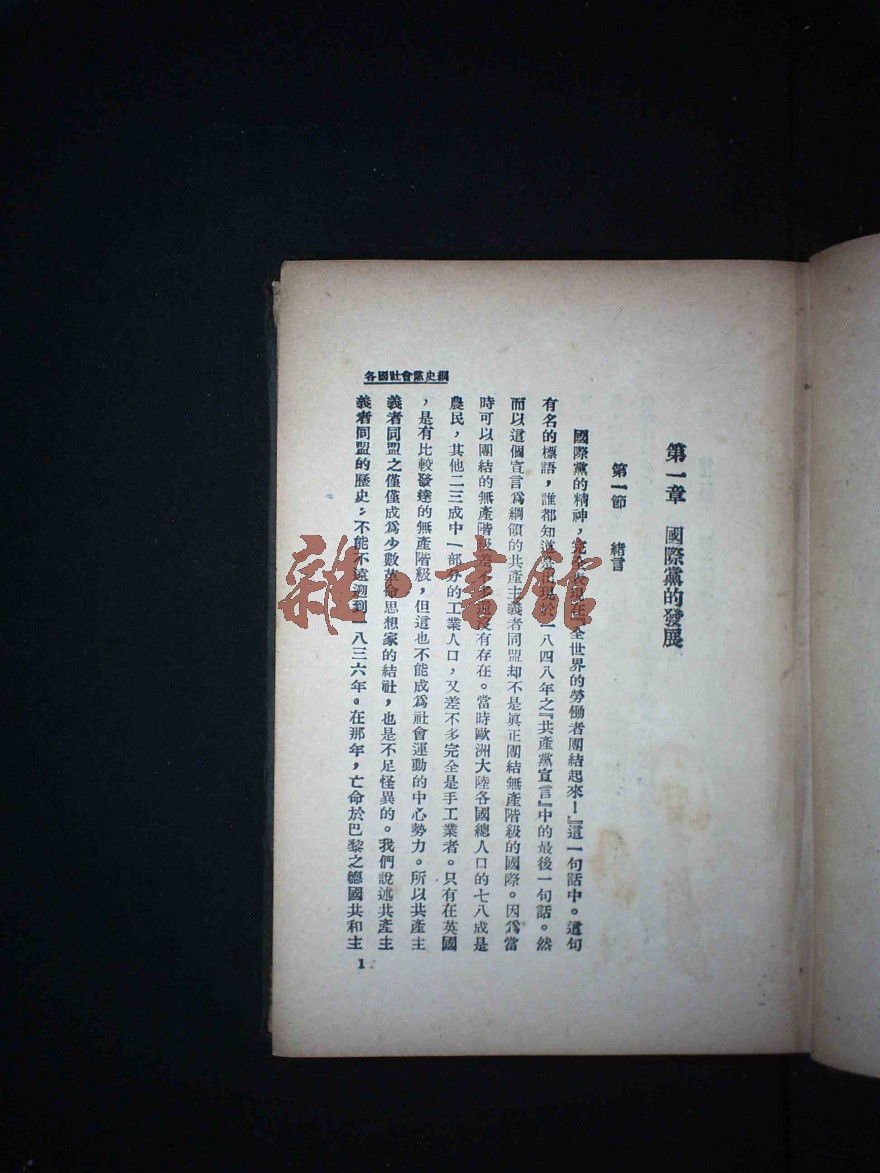 各國社會黨史綱
第一章　國際黨的發展
第一節　緒言
國際黨的精神，完全表現在『全世界的勞働者團結起來！』這一句話中。這句
有名的標語，誰都知道是出現於一八四八年之『共產黨宣言』中的最後一句話。然
而以這個宣言爲綱領的共產主義者同盟却不是眞正團結無產階級的國際。因爲當
時可以團結的無產階級差不多還沒有存在。當時歐洲大陸各國總人口的七八成是
農民，其他二三成中一部分的工業人口，又差不多完全是手工業者。只有在英國
，是有比較發達的無產階級，但這也不能成爲社會運動的中心勢力。所以共產主
義者同盟之僅僅成爲少數革命思想家的結社，也是不足怪異的。我們說述共產主
義者同盟的歷史，不能不遠溯到一八三六年。在那年，亡命於巴黎之德國共和主
1
雜·書館